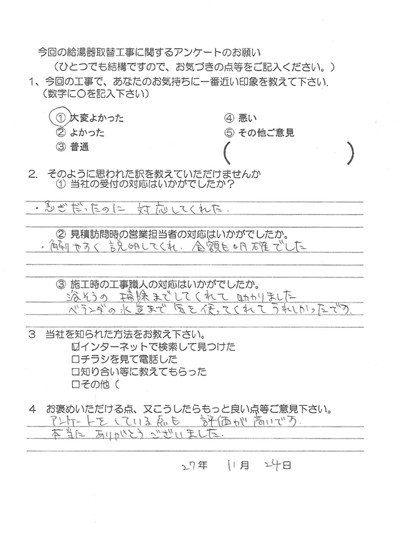 今回の給湯器取替工事に関するアンケートのお願い
(ひとつでも結構ですので、お気づきの点等をご記入ください。)
1、今回の工事で、あなたのお気持ちに一番近い印象を教えて下さい.
(数字に○を記入下さい)
① 大変よかった ④ 悪い
② よかった ⑤ その他ご意見
③ 普通 ( )
2. そのように思われた訳を教えていただけませんか
① 当社の受付の対応はいかがでしたか?
・急ぎだったのに 対応してくれた.
② 見積訪問時の営業担当者の対応はいかがでしたか.
・解りやすく説明してくれ. 金額も明確でした
③ 施工時の工事職人の対応はいかがでしたか?
浴そうの掃除までしてくれて 助かりました
ベランダの水まで気を使ってくれてうれしかったです.
3 当社を知られた方法をお教え下さい。
☑インターネットで検索して見つけた
□チラシを見て電話した
□知り合い等に教えてもらった
□その他(
4 お褒めいただける点、又こうしたらもっと良い点等ご意見下さい。
アンケートをしている点も 評価が高いです.
本当に ありがとうございました.
27年 11月 24日